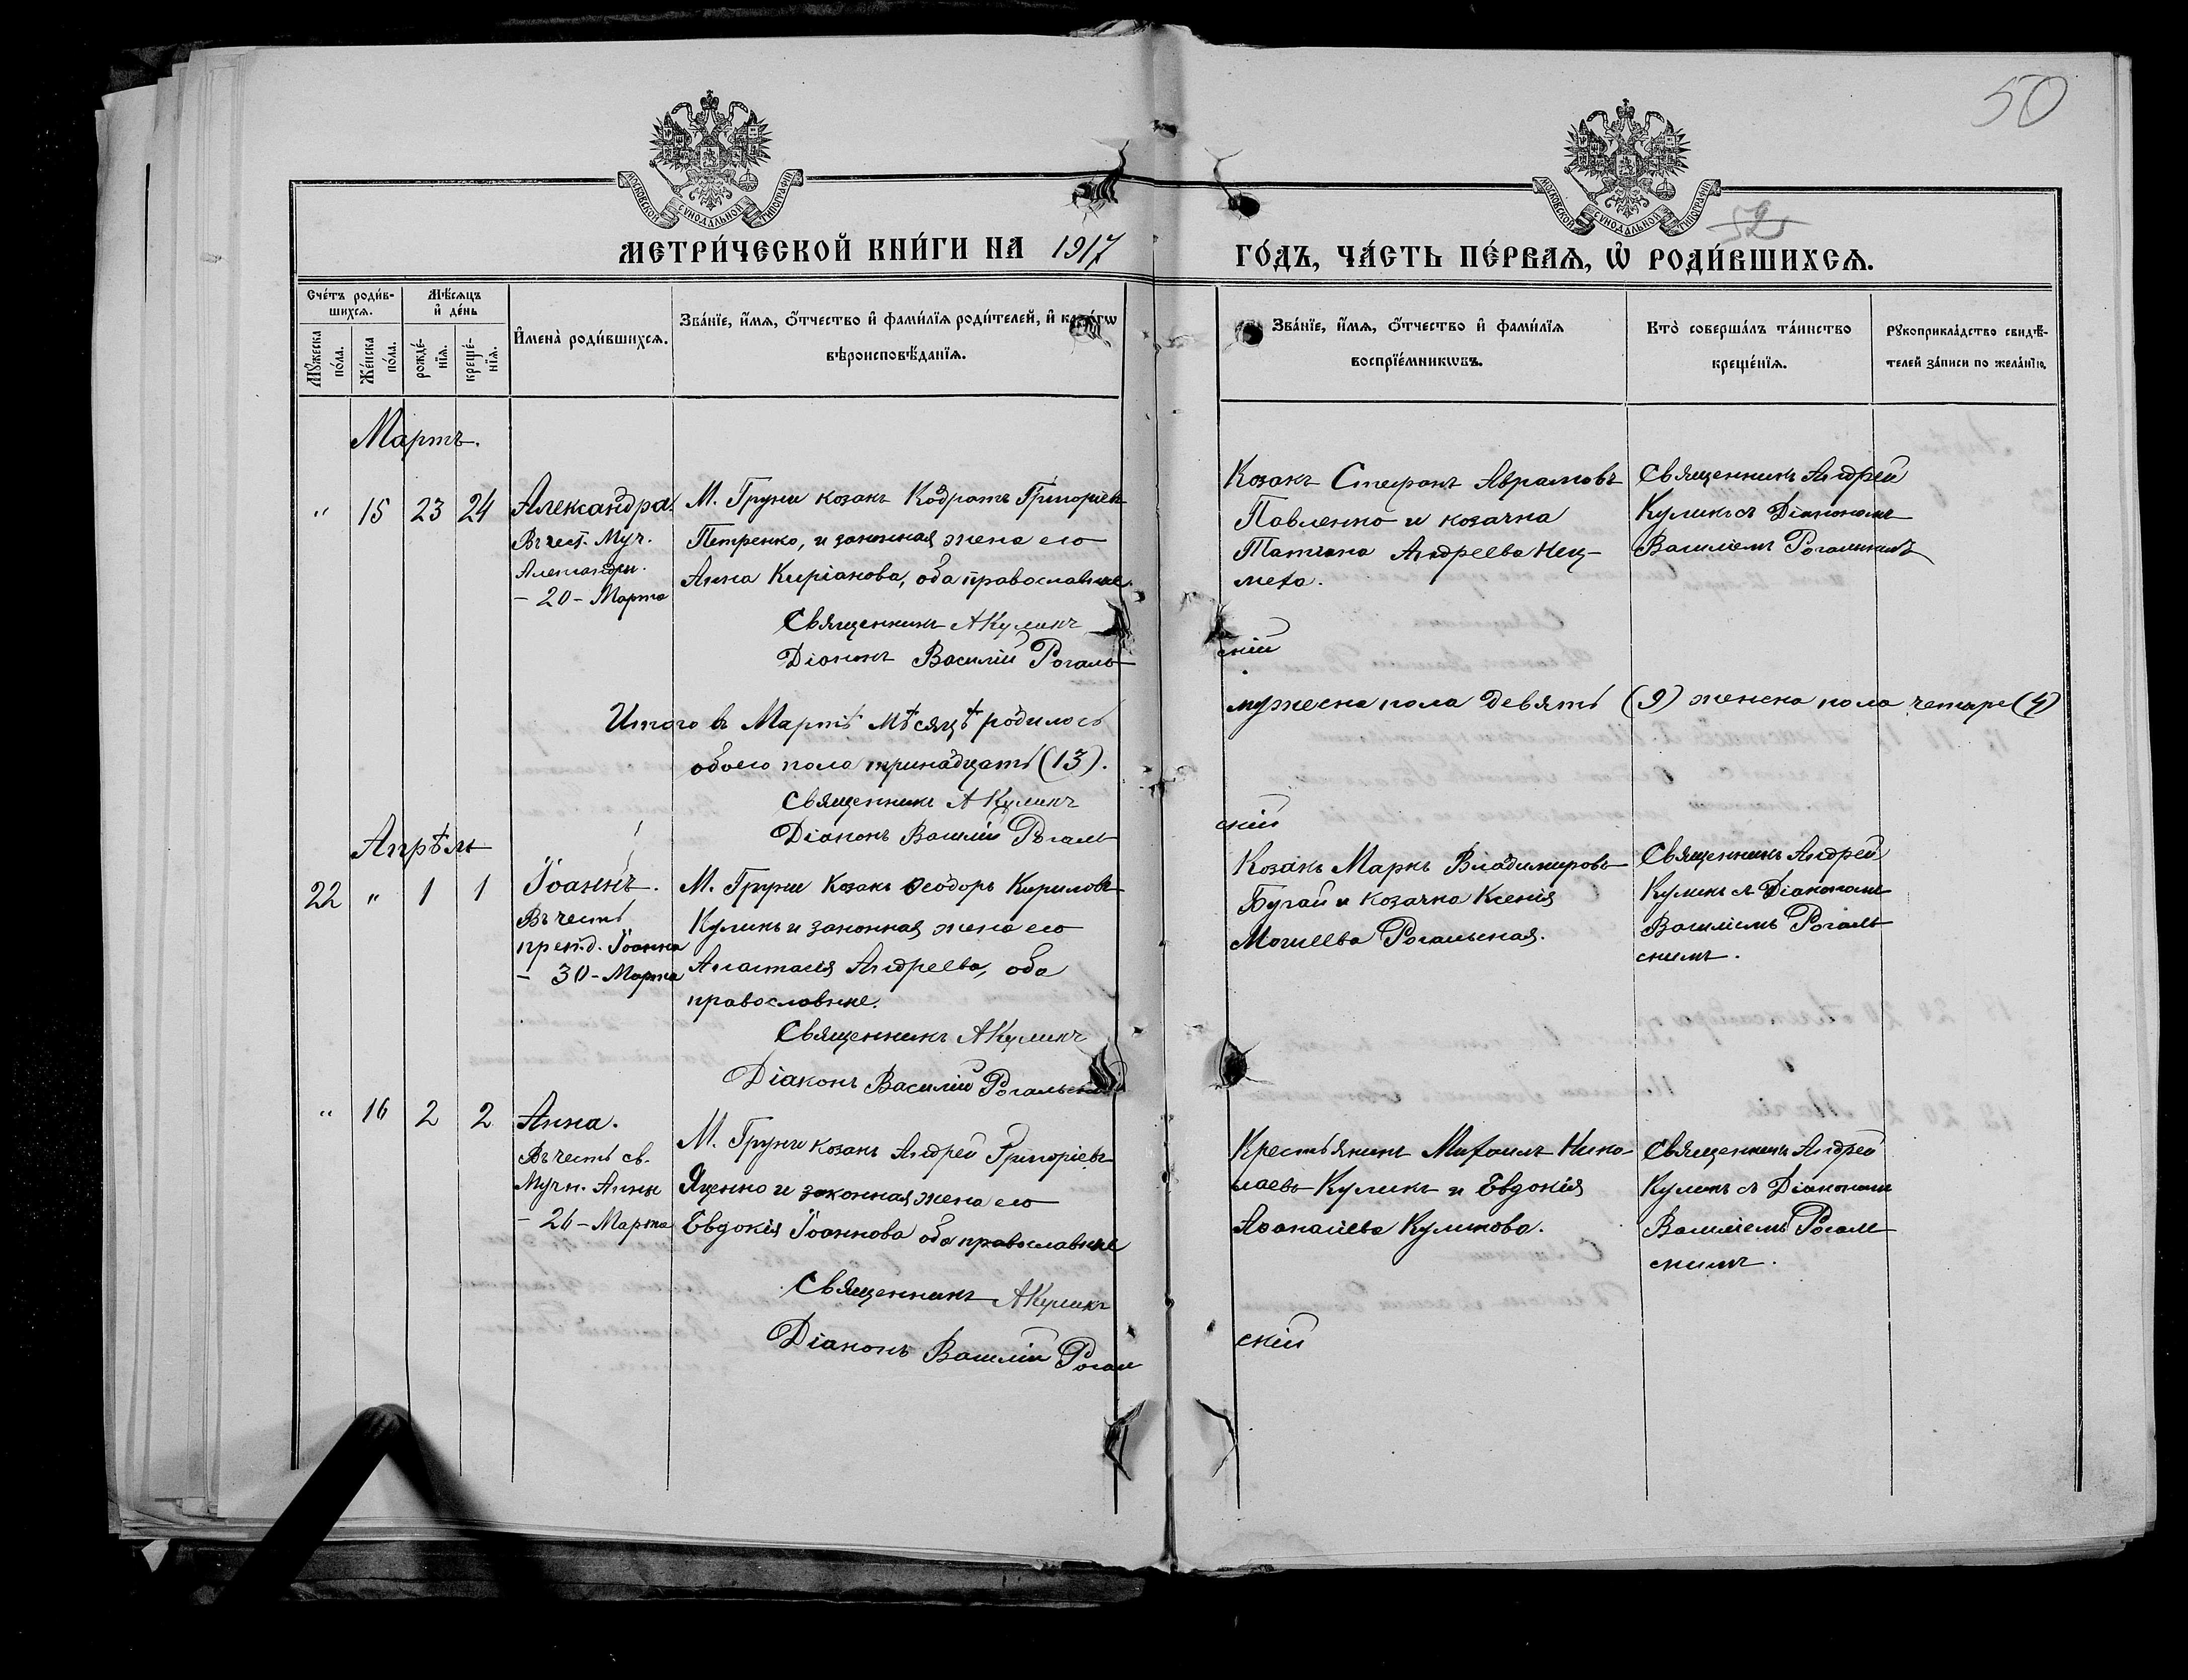 50
МОСКОВСКОЙ СѴНОДАЛЬНОЙ ТИПОГРАФІИ
МОСКОВСКОЙ СѴНОДАЛЬНОЙ ТИПОГРАФІИ
52
МЕТРИ́ЧЕСКОЙ КНИ́ГИ НА 1917 ГО́ДЪ, ЧА́СТЬ ПЕ́РВАѦ, Ѡ҆ РОДИ́ВШИХСѦ.
Сче́тъ роди́в-
шихсѧ.
Мѣ́сѧцъ
и҆ де́нь
Мꙋ́жеска
по́ла.
Же́нска
по́ла.
рожде́-
нїѧ.
креще́-
нїѧ.
И҆мена̀ роди́вшихсѧ.
Зва́нїе, и҆́мѧ, ѻ҆́тчество и҆ фами́лїѧ роди́телей, и҆ како́гѡ
вѣроисповѣ́данїѧ.
Зва́нїе, и҆́мѧ, ѻ҆́тчество и҆ фами́лїѧ
воспрїе́мникѡвъ.
Кто̀ соверша́лъ та́инство
креще́нїѧ.
Рꙋкоприкла́дство свидѣ́-
телей за́писи по жела́нїю.
Мартъ.
" 15 23 24
Александра.
Въ чест. Муч.
Александры.
– 20 – Марта
М. Груни козакъ Кодратъ Григоріевъ
Петренко, и законная жена его
Анна Киріанова, оба православные.
Священникъ АКуликъ
Діаконъ Василій Рогаль
Козакъ Стефанъ Аврамовъ
Павленко и козачка
Татіана Андреева Неч-
меха.
скій
Священникъ Андрей
Куликъ съ Діакономъ
Василіемъ Рогальскимъ
Итого въ Мартѣ мѣсяцѣ родилось мужеска пола девять (9) женска пола четыре (4)
обоего пола тринадцать (13).
Священникъ АКуликъ
Діаконъ Василій Рогаль
скій
Апрѣль
22 " 1 1
Іоаннъ.
Въ честь
преп.д. Іоанна
– 30 – Марта
М. Груни Козакъ Ѳеодоръ Кириловъ
Куликъ и законная жена его
Анастасія Андреева, оба
православные.
Священникъ АКуликъ
Діаконъ Василій Рогальскій
Козакъ Маркъ Владимировъ
Бугай и козачка Ксенія
Моисеева Рогальская.
Священникъ Андрей
Куликъ съ Діакономъ
Василіемъ Рогаль
скимъ.
" 16 2 2
Анна.
Въ честь св.
Мучн. Анны
– 26 – Марта
М. Груни козакъ Андрей Григоріевъ
Яценко и законная жена его
Евдокія Іоаннова оба православные
Священникъ АКуликъ
Діаконъ Василій Рогаль
Крестьянинъ Михаилъ Нико-
лаевъ Куликъ и Евдокія
Аѳанасіева Куликова.
скій
Священникъ Андрей
Куликъ съ Діакономъ
Василіемъ Рогаль
скимъ.